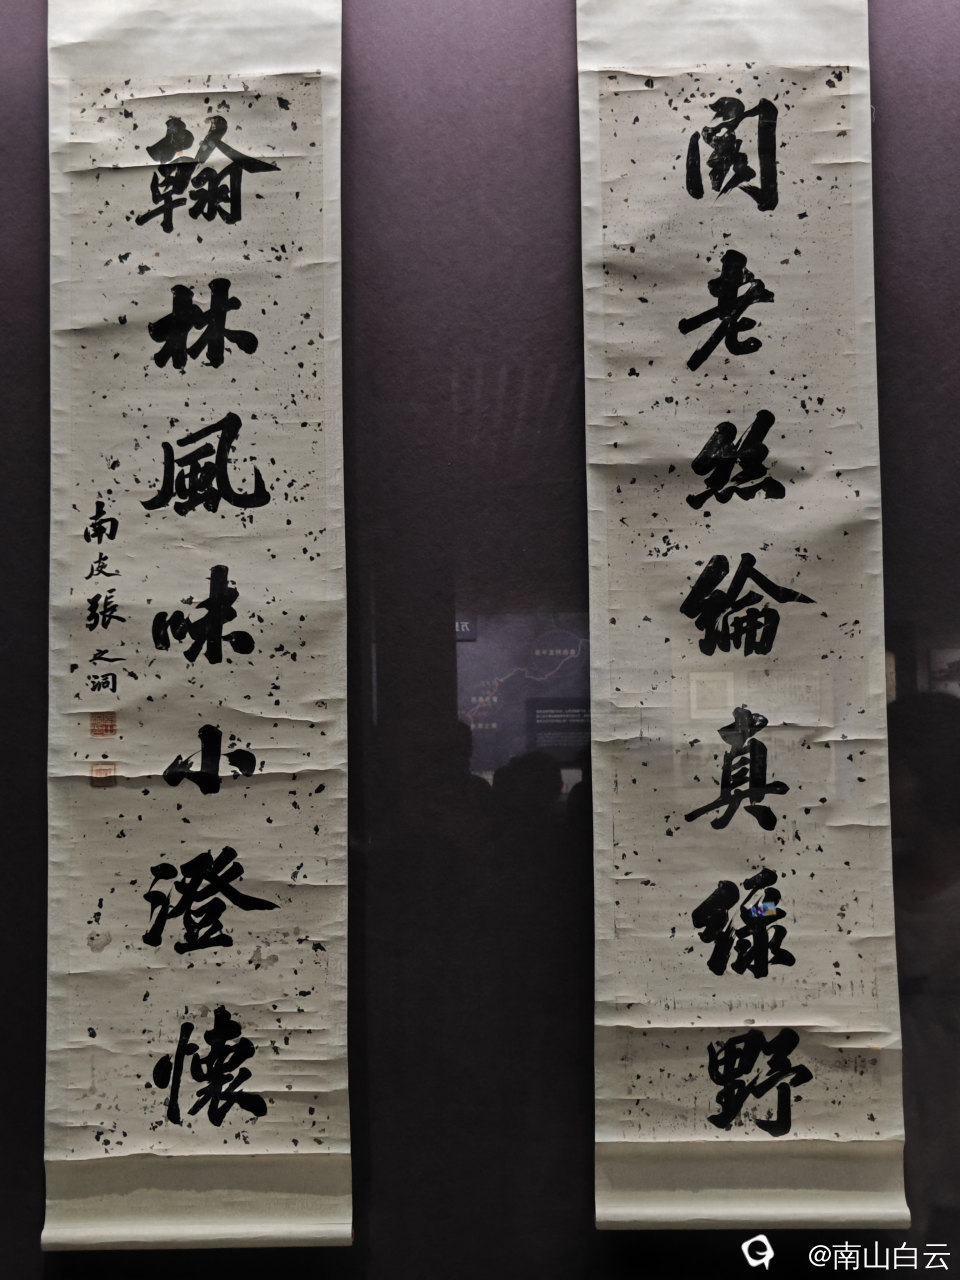 阁老丝纶真绿野
翰林風味小澄懷
南皮張之洞
@南山白云